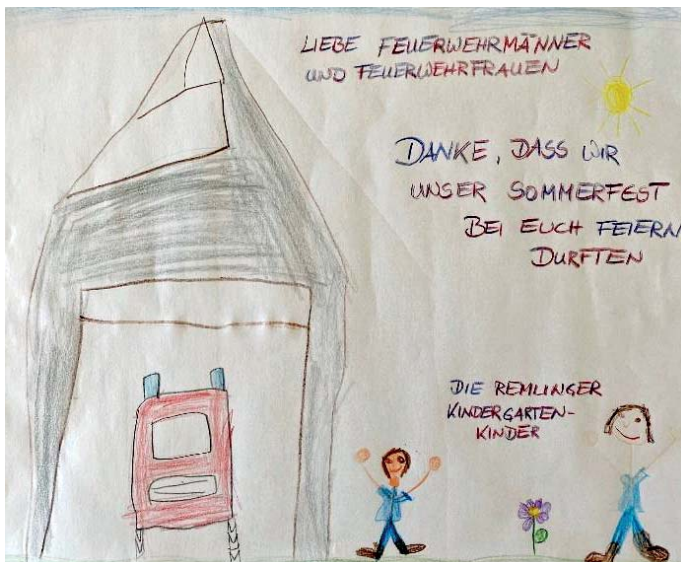 LIEBE FEUERWEHRMÄNNER
UND FEUERWEHRFRAUEN
DANKE, DASS WIR
UNSER SOMMERFEST
BEI EUCH FEIERN
DURFTEN
DIE REMLINGER
KINDERGARTEN-
KINDER